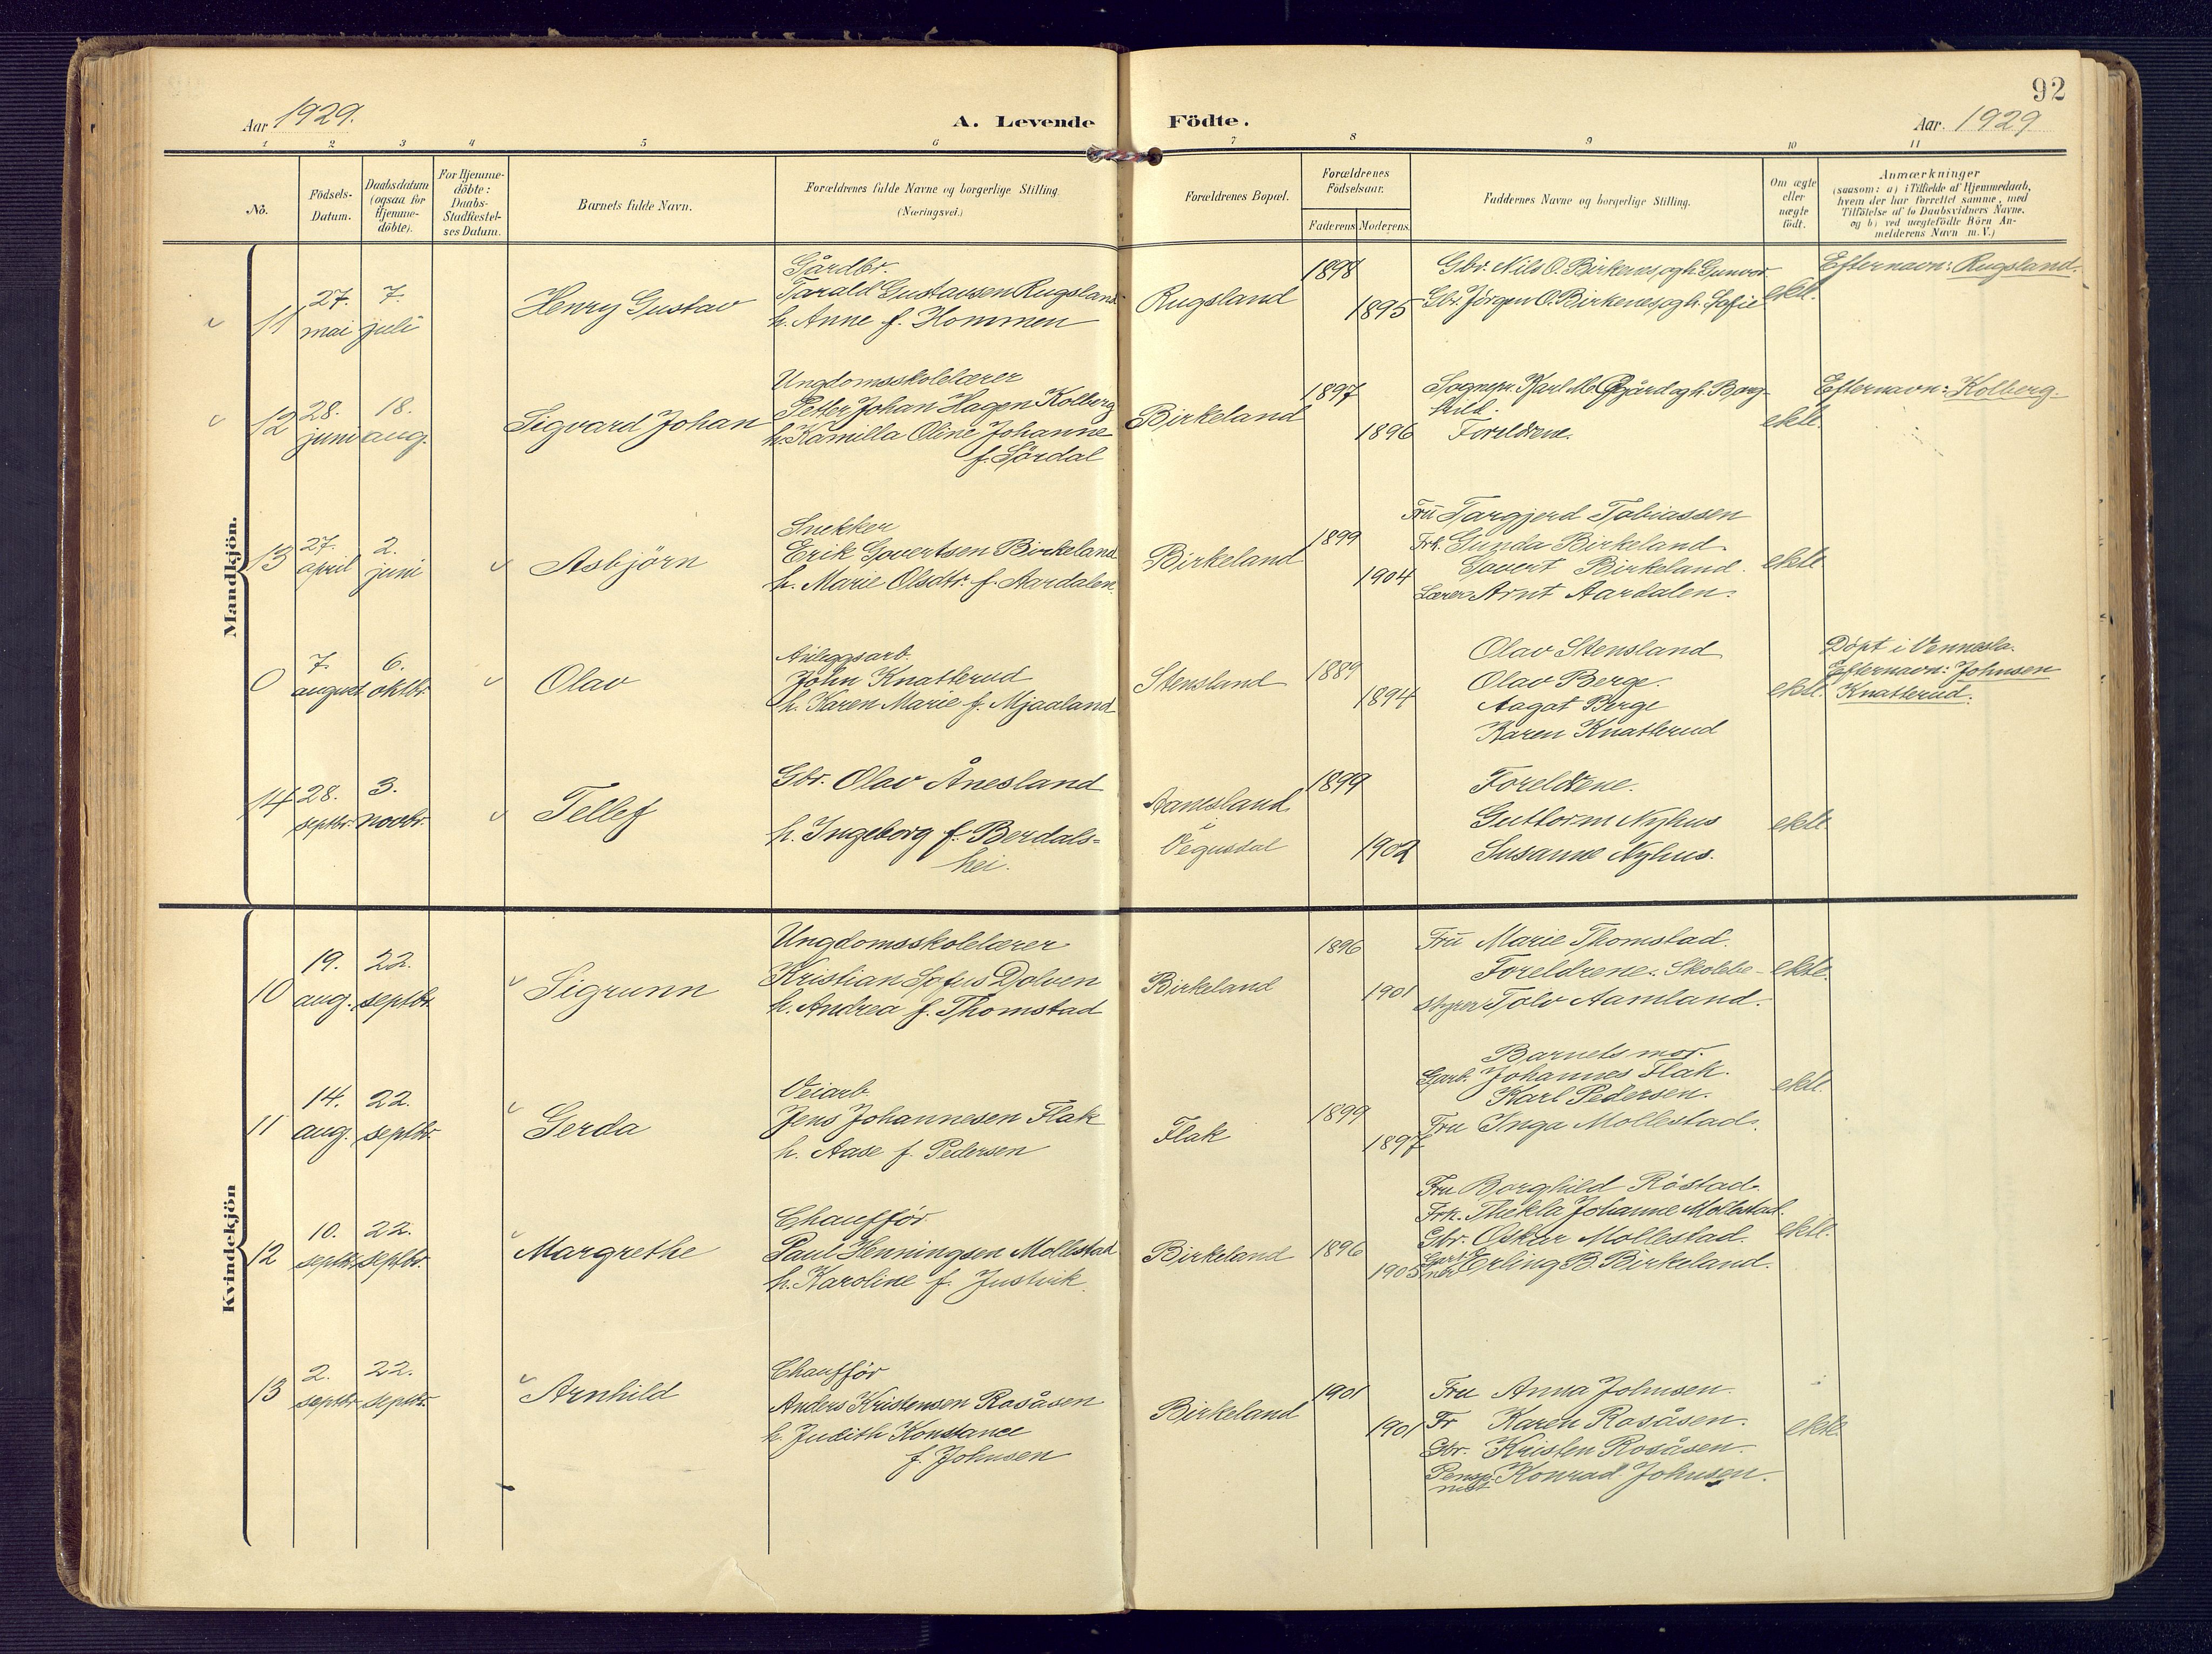 92
Aar 1929.
A. Levende Födte.
Aar. 1929
1 2 3 4 5 6 7 8 9 10 11
No.
Födsels-Datum.
Daabsdatum (ogsaa for Hjemme-döbte).
For Hjemme-döbte: Daabs-Stadfæstel-ses Datum.
Barnets fulde Navn.
Forældrenes fulde Navne og borgerlige Stilling.
(Næringsvei.)
Forældrenes Bopæl.
Forældrenes Födselsaar.
Faderens Moderens
Faddernes Navne og borgerlige Stilling.
Om ægte eller uægte födt.
Anmærkninger
(saasom: a) i Tilfælde af Hjemmedaab,
hvem der har forrettet samme, med
Tilföielse af to Daabsvidners Navne.
og b) ved uægtefödte Börn An-
melderens Navn m. V.)
Mandkjön.
11 27. mai 7. juli
Henry Gustav
Gårdbr.
Tarald Gustavsen Rugsland
h. Anne f. Hommen
Rugsland
1898
1895
Gbr. Nils O. Birkenes og h. Gunvor
Gbr. Jörgen O. Birkenes og h. Sofie
ekte.
Efternavn: Rugsland.
12 28. juni 18. aug.
Sigvard Johan
Ungdomsskolelærer
Petter Johan Hagen Kolberg
h. Kamilla Oline Johanne
f. Sördal
Birkeland
1897
1896
Sognepr. Karl M. og h. Borg-
hild.
Foreldrene.
ekte.
Efternavn: Kolberg.
13 27. april 2. juni
Asbjörn
Snekker
Erik Govertsen Birkeland
h. Marie Olsdtr. f. Aardalen.
Birkeland
1899
1904
Fru Targjerd Tobiassen
Frk. Gunda Birkeland
Govert Birkeland.
Lærer Arnt Aardalen.
ekte
0 7. august 6. oktbr.
Olav
Anleggsarb.
John Knatterud
h. Karen Marie f. Mjaaland
Stensland
1889
1894
Olav Stensland
Olav Berge.
Aagot Berge
Karen Knatterud
ekte.
Döpt i Vennesla.
Efternavn: Johnsen
Knatterud.
14 28. septbr. 3. novbr.
Tellef
Gbr. Olav Ånesland
h. Ingeborg f. Berdals-
hei.
Aanesland
i
Vegusdal
1899
1902
Foreldrene.
Guttorm Nyhus
Susanne Nyhus.
ekte
Kvindekjön
10 19. aug. 22. septbr.
Sigrunn
Ungdomsskolelærer
Kristian Sofus Dolven
h. Andrea f. Thomstad
Birkeland
1896
1901
Fru Marie Thomstad.
Foreldrene. Skolebe-
styrer Tolv Aamland.
ekte.
11 14. aug. 22. septbr.
Gerda
Veiarb.
Jens Johannesen Flak
h. Aase f. Pedersen
Flak
1899
1897
Barnets mor.
Garb. Johannes Flak.
Karl Pedersen.
Fru Inga Mollestad.
ekte.
12 10. septbr. 22. septbr.
Margrethe
Chauffør
Paul Henningsen Mollestad
h. Karoline f. Justvik
Birkeland
1896
1905
Fru Borghild Röstad.
Frk. Thekla Johanne Mollestad.
Gbr. Oskar Mollestad.
Erling B. Birkeland.
ekte.
13 2. septbr. 22. septbr.
Arnhild
Chauffør
Anders Kristensen Rosåsen
h. Judith Konstance
f. Johnsen
Birkeland
1901
1901
Fru Anna Johnsen.
Fr Karen Rosåsen.
Gbr. Kristen Rosåsen.
Konrad Johnsen.
ekte.